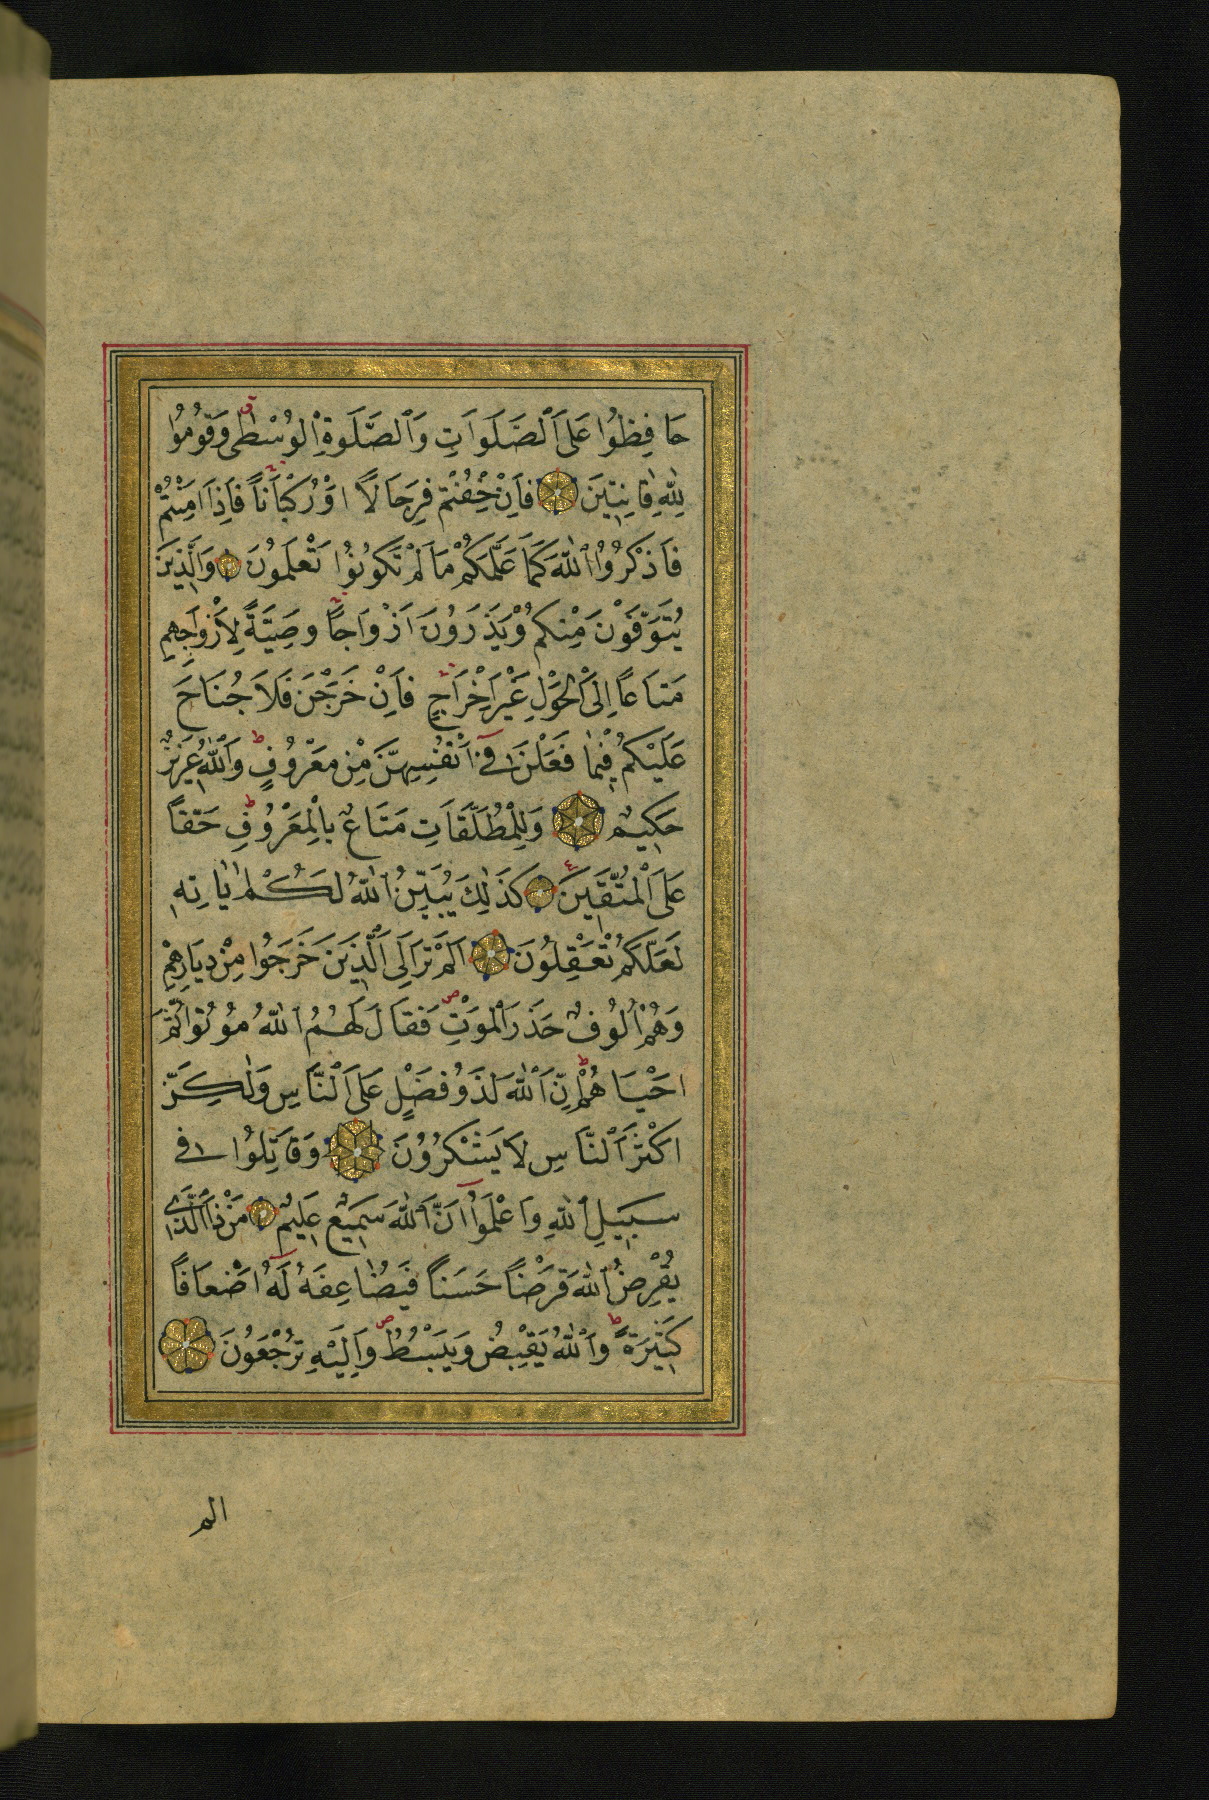 حَافِظُوا عَلَى ٱلصَّلَوَاتِ وَٱلصَّلٰوةِ ٱلْوُسْطٰى ق وَقُومُوا
لِلّٰهِ قَانِتِينَ فَاِنْ خِفْتُمْ فَرِجَالًا اَوْ رُكْبَانًا ج فَاِذَا اَمِنْتُمْ
فَاذْكُرُوا ٱللّٰهَ كَمَا عَلَّمَكُمْ مَا لَمْ تَكُونُوا تَعْلَمُونَ وَٱلَّذِينَ
يُتَوَفَّوْنَ مِنْكُمْ وَيَذَرُونَ اَزْوَاجًا ج وَصِيَّةً لِاَزْوَاجِهِمْ
مَتَاعًا اِلَى ٱلْحَوْلِ غَيْرَ اِخْرَاجٍ ج فَاِنْ خَرَجْنَ فَلَا جُنَاحَ
عَلَيْكُمْ فِيمَا فَعَلْنَ فِى اَنْفُسِهِنَّ مِنْ مَعْرُوفٍ ط وَٱللّٰهُ عَزِيزٌ
حَكِيمٌ وَلِلْمُطَلَّقَاتِ مَتَاعٌ بِالْمَعْرُوفِ ط حَقًّا
عَلَى ٱلْمُتَّقِينَ ع كَذٰلِكَ يُبَيِّنُ ٱللّٰهُ لَكُمْ اٰيَاتِهِ
لَعَلَّكُمْ تَعْقِلُونَ اَلَمْ تَرَ اِلَى ٱلَّذِينَ خَرَجُوا مِنْ دِيَارِهِمْ
وَهُمْ اُلُوفٌ حَذَرَ ٱلْمَوْتِ ص فَقَالَ لَهُمُ ٱللّٰهُ مُوتُوا ثُمَّ
اَحْيَاهُمْ ط اِنَّ ٱللّٰهَ لَذُو فَضْلٍ عَلَى ٱلنَّاسِ وَلٰكِنَّ
اَكْثَرَ ٱلنَّاسِ لَا يَشْكُرُونَ وَقَاتِلُوا فِى
سَبِيلِ ٱللّٰهِ وَاعْلَمُوا اَنَّ ٱللّٰهَ سَمِيعٌ عَلِيمٌ مَنْ ذَا ٱلَّذِى
يُقْرِضُ ٱللّٰهَ قَرْضًا حَسَنًا فَيُضَاعِفَهُ لَهُ اَضْعَافًا
كَثِيرَةً ط وَٱللّٰهُ يَقْبِضُ وَيَبْسُطُ ص وَاِلَيْهِ تُرْجَعُونَ
الم